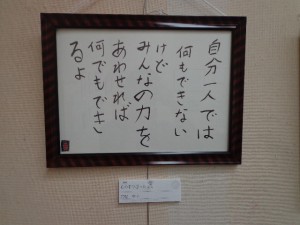 自分一人では
何もできない
けど
みんなの力を
あわせれば
何でもでき
るよ